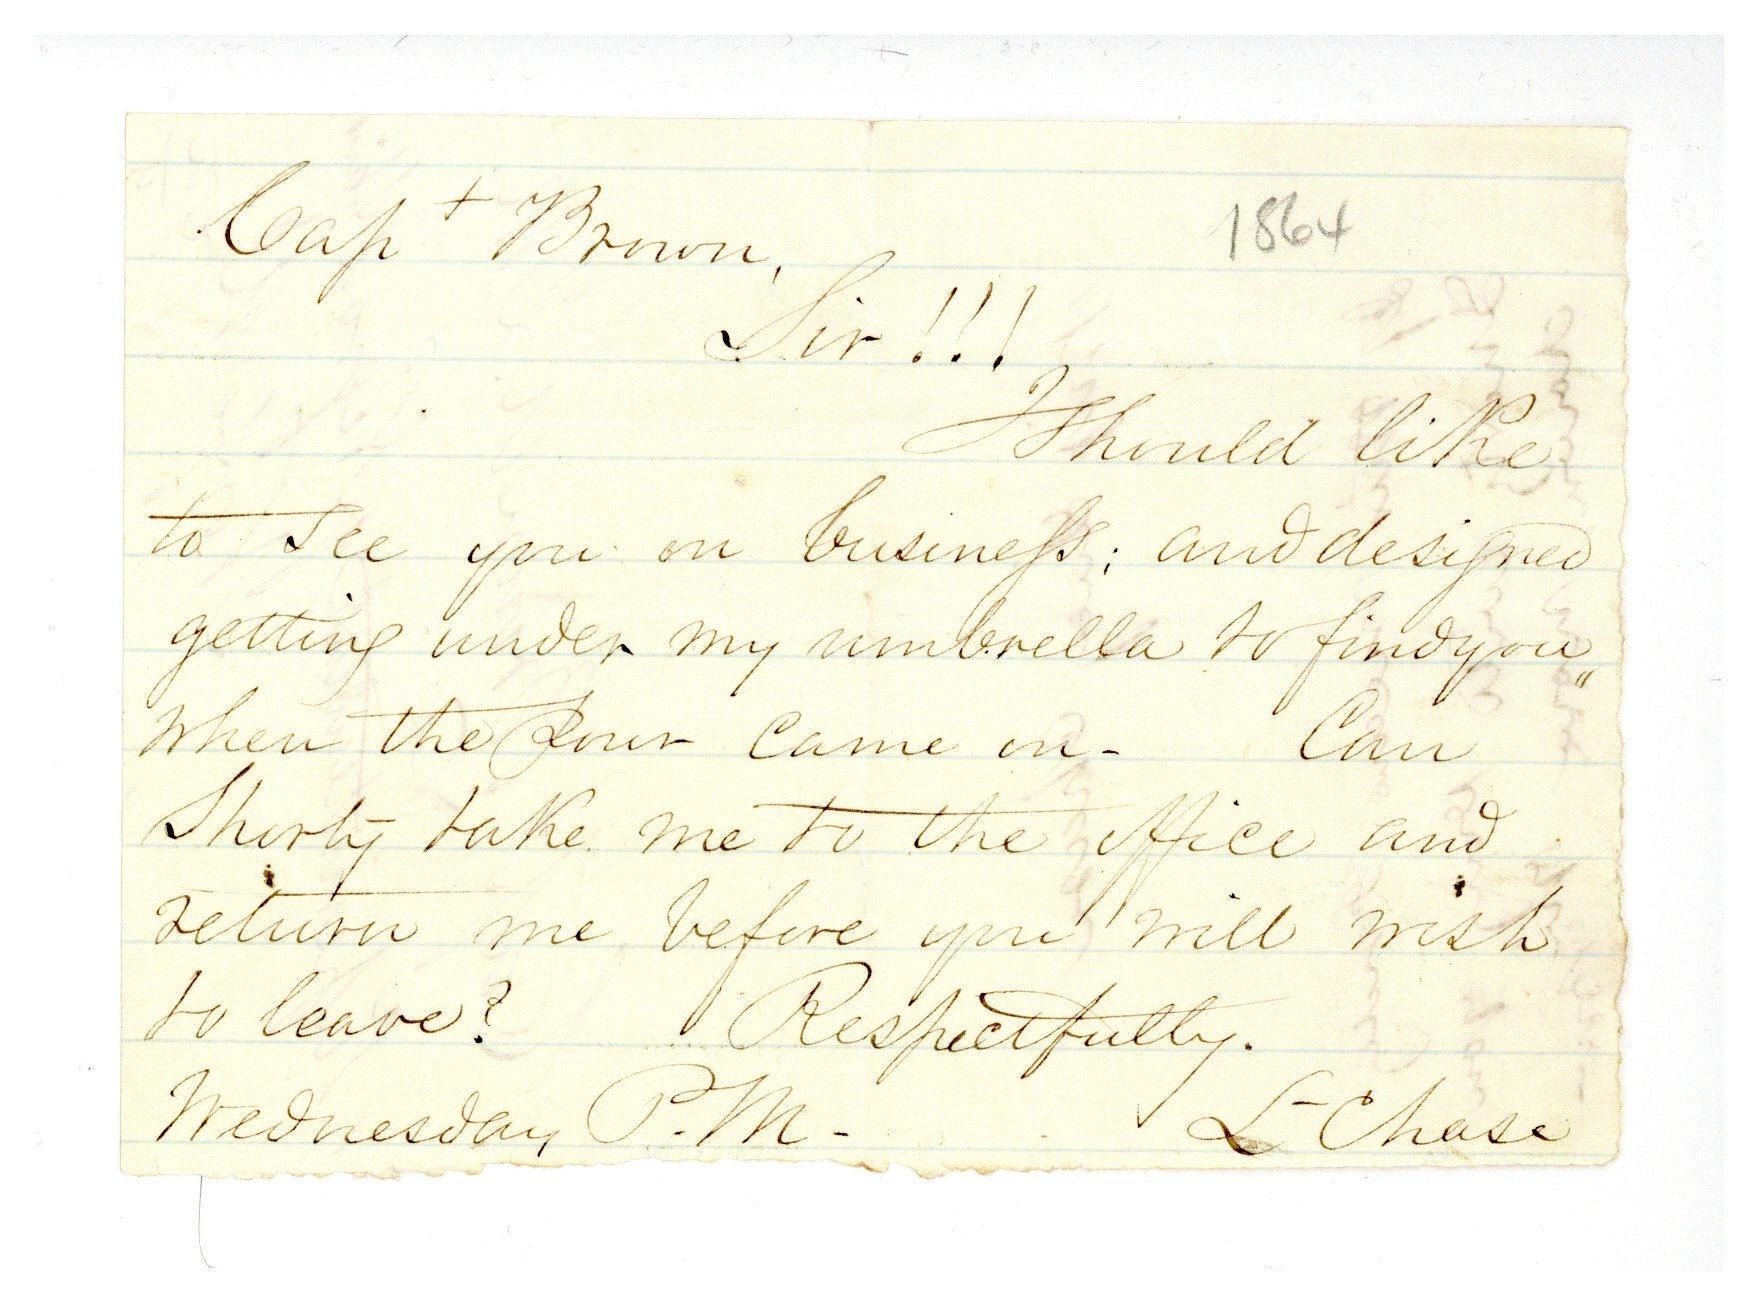 Capt Brown,
1864
Sir!!!
I Should like
to see you on business; and designed
getting under my umbrella to find you"
when the came on - Can
Shorty take me to the office and
return me before you will wish
to leave? Respectfully.
Wednesday P.M. - L- Chase